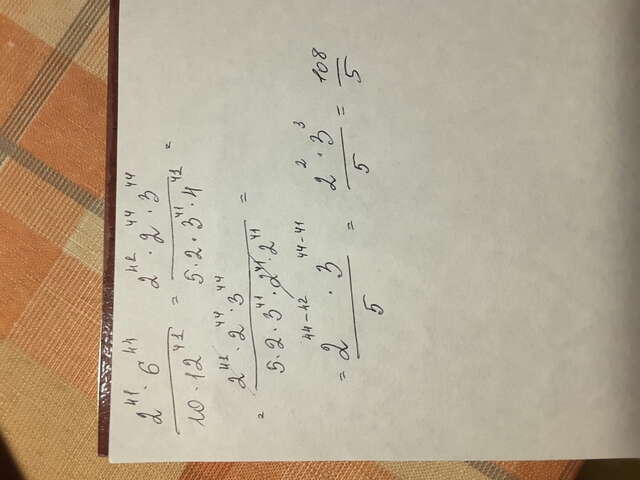 2^41 · 6^44 / 10 · 12^41 = 2^42 · 2^44 · 3^44 / 5 · 2 · 3^41 · 4^41 =
= 2^41 · 2^44 · 3^44 / 5 · 2 · 3^41 · 2^41 · 2^41 =
= 2^44-42 · 3^44-41 / 5 = 2^2 · 3^3 / 5 = 108 / 5